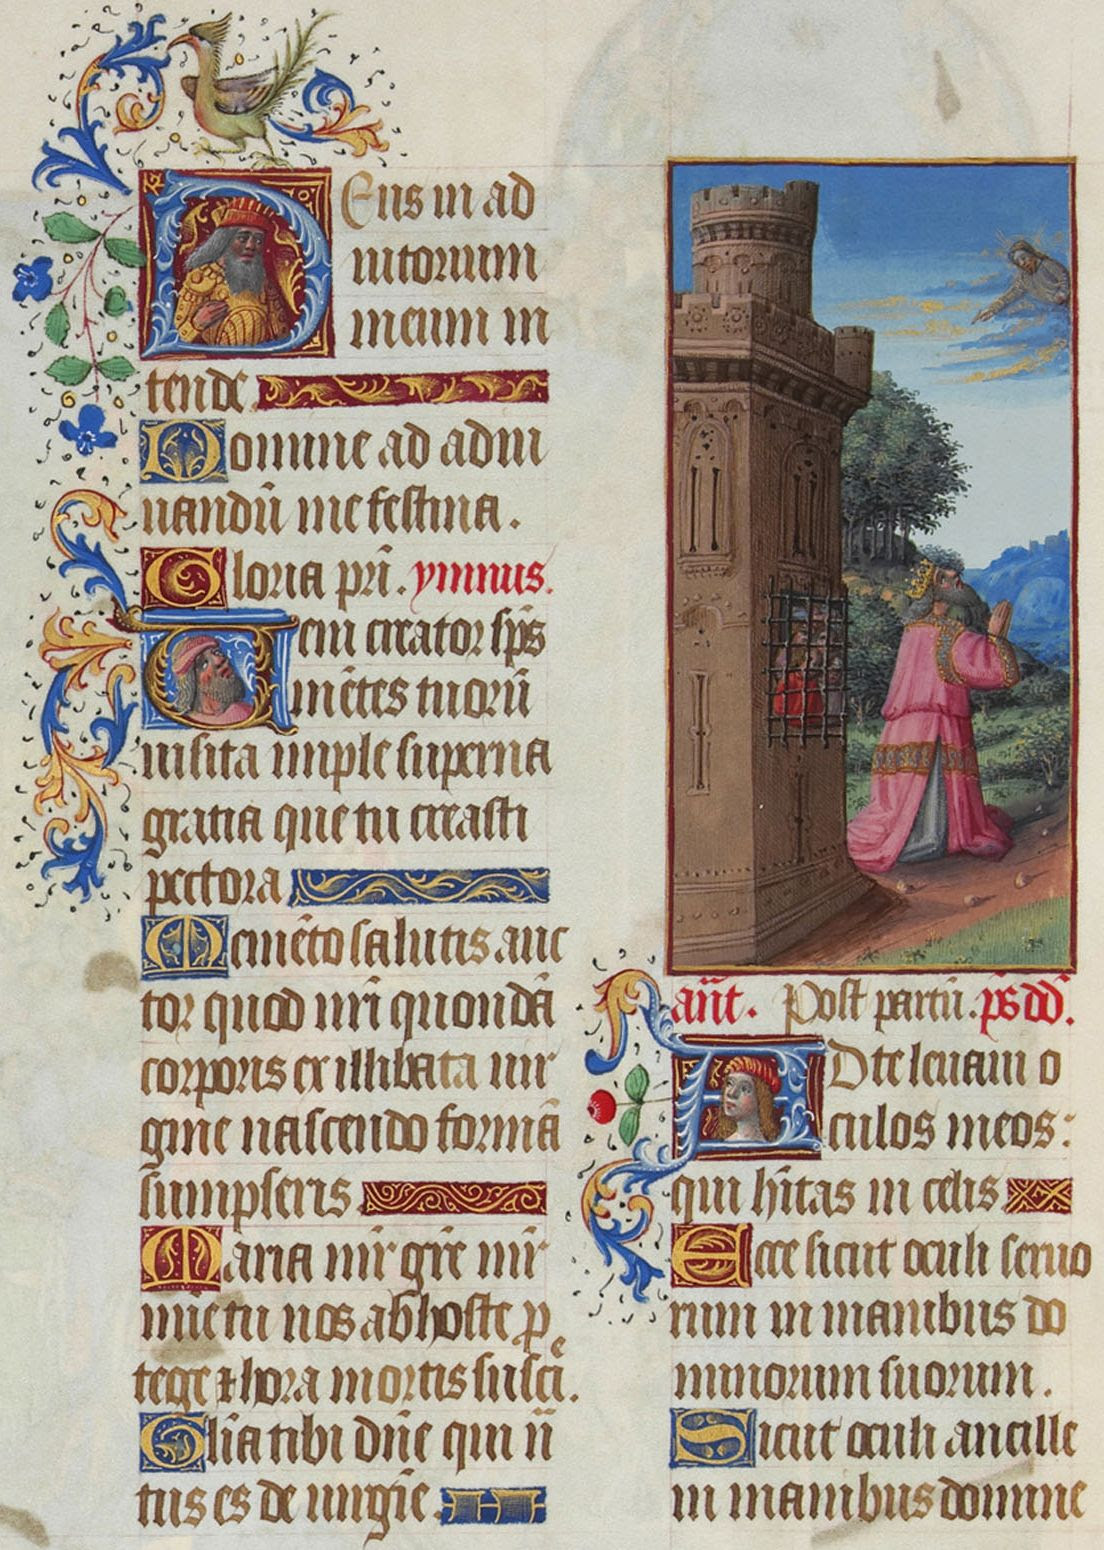 Deus in ad
iutorium
meum in
tende
Domine ad adiu
uandū me festina.
Gloria pr̄i. ymnus.
Ueni creator sp̄s
mētes tuorū
uisita imple superna
gratia que tu creasti
pectora
Memēto salutis auc
tor quod nr̄i quondā
corporis ex illibata uir
gine nascendo formā
sumpseris
Maria mr̄ gr̄e mr̄
mie tu nos ab hoste p
tege & hora mortis suscipe.
Glīa tibi dn̄e qui n̄
tus es de uirgīe
an̄t. Post partū. ps dd̄.
AD te leuaui o
culos meos:
qui hītas in celis
Ecce sicut oculi seruo
rum in manibus do
minorum suorum.
Sicut oculi ancille
in manibus domine